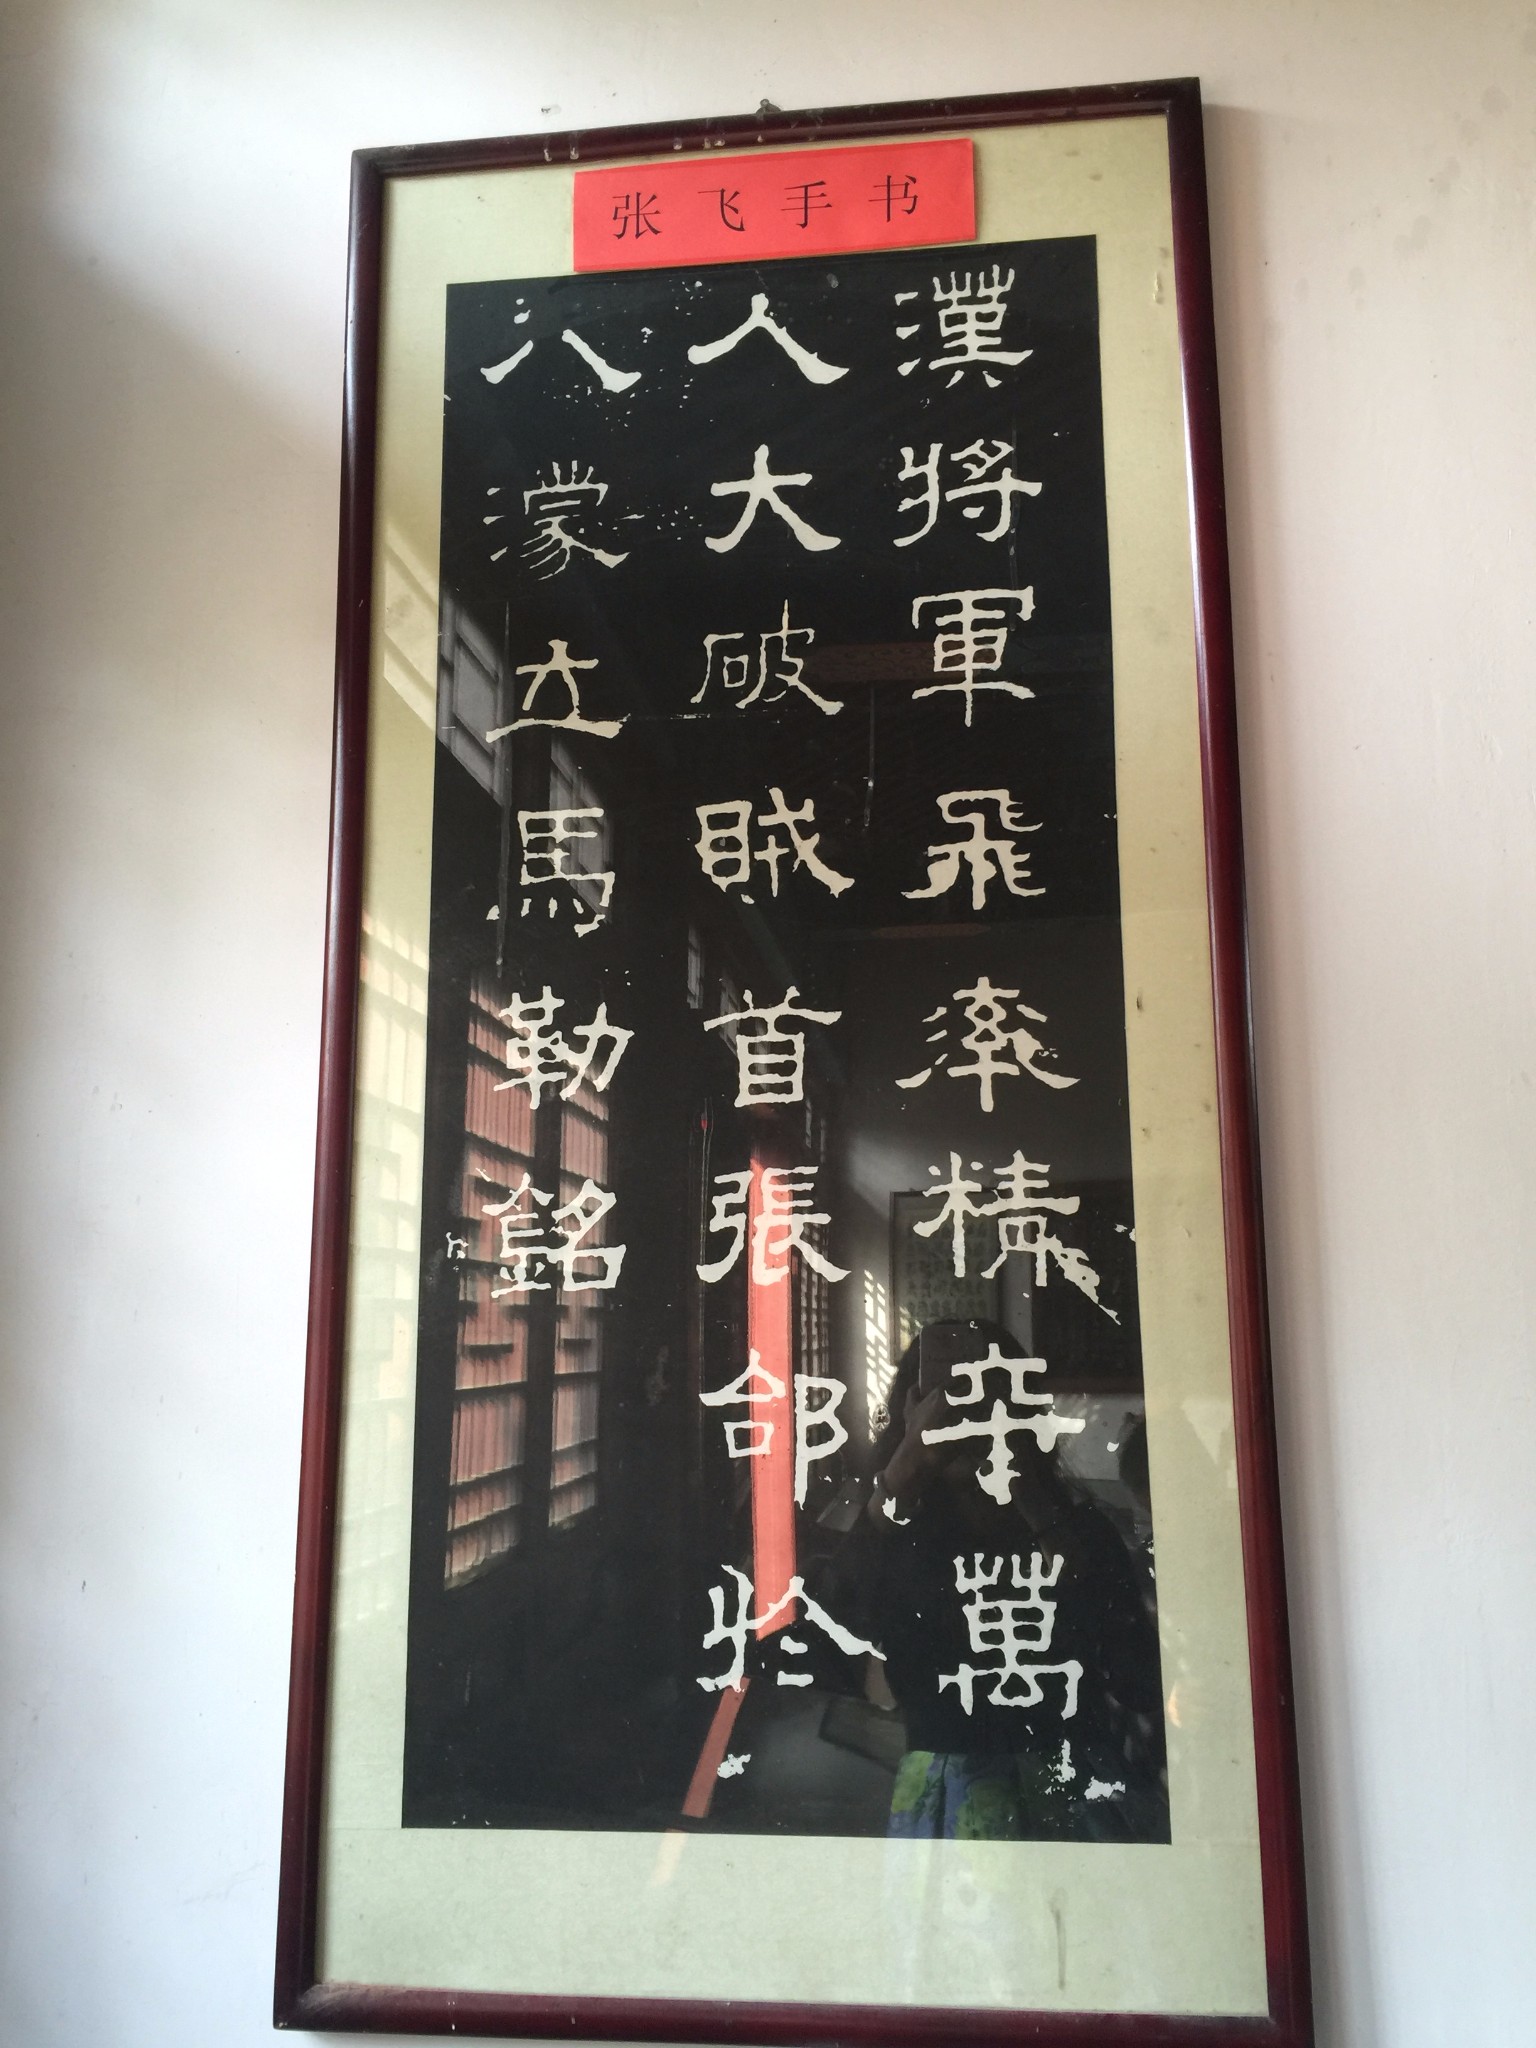 张飞手书
漢將軍飛率精卒萬
人大破賊首張郃於
八濛立馬勒銘